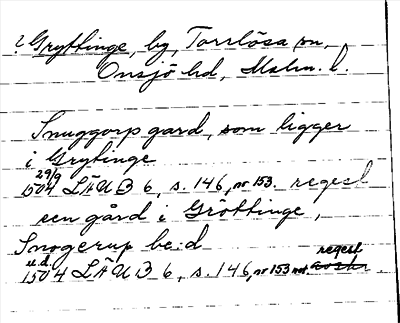 ? Gryttinge, by, Torrlösa sn,
Onsjö hd, Malm. l.
Snuggorp gard, som ligger
i Grytinge
29/9
1504 LÄUB 6, s. 146, nr 153. regest
een gård i Gröttinge,
Snogerup be:d
u.d. regest
1504 LÄUB 6, s. 146, nr 153